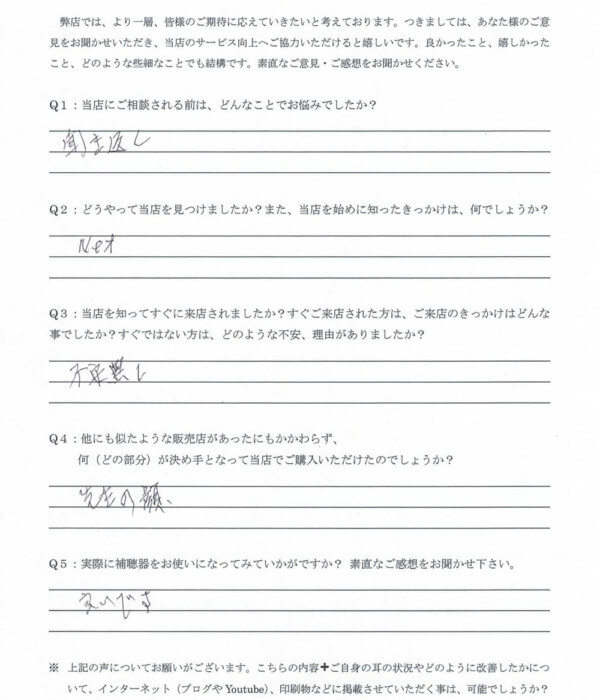 弊店では、より一層、皆様のご期待に応えていきたいと考えております。つきましては、あなた様のご意
見をお聞かせいただき、当店のサービス向上へご協力いただけると嬉しいです。良かったこと、嬉しかった
こと、どのような些細なことでも結構です。素直なご意見・ご感想をお聞かせください。
Q1：当店にご相談される前は、どんなことでお悩みでしたか？
聞き返し
Q2：どうやって当店を見つけましたか？また、当店を始めに知ったきっかけは、何でしょうか？
Net
Q3：当店を知ってすぐに来店されましたか？すぐご来店された方は、ご来店のきっかけはどんな
事でしたか？すぐではない方は、どのような不安、理由がありましたか？
無し
Q4：他にも似たような販売店があったにもかかわらず、
何（どの部分）が決め手となって当店でご購入いただけたのでしょうか？
先生の顔、
Q5：実際に補聴器をお使いになってみていかがですか？ 素直なご感想をお聞かせ下さい。
良いです
※ 上記の声についてお願いがございます。こちらの内容✚ご自身の耳の状況やどのように改善したかにつ
いて、インターネット（ブログや Youtube）、印刷物などに掲載させていただく事は、可能でしょうか？